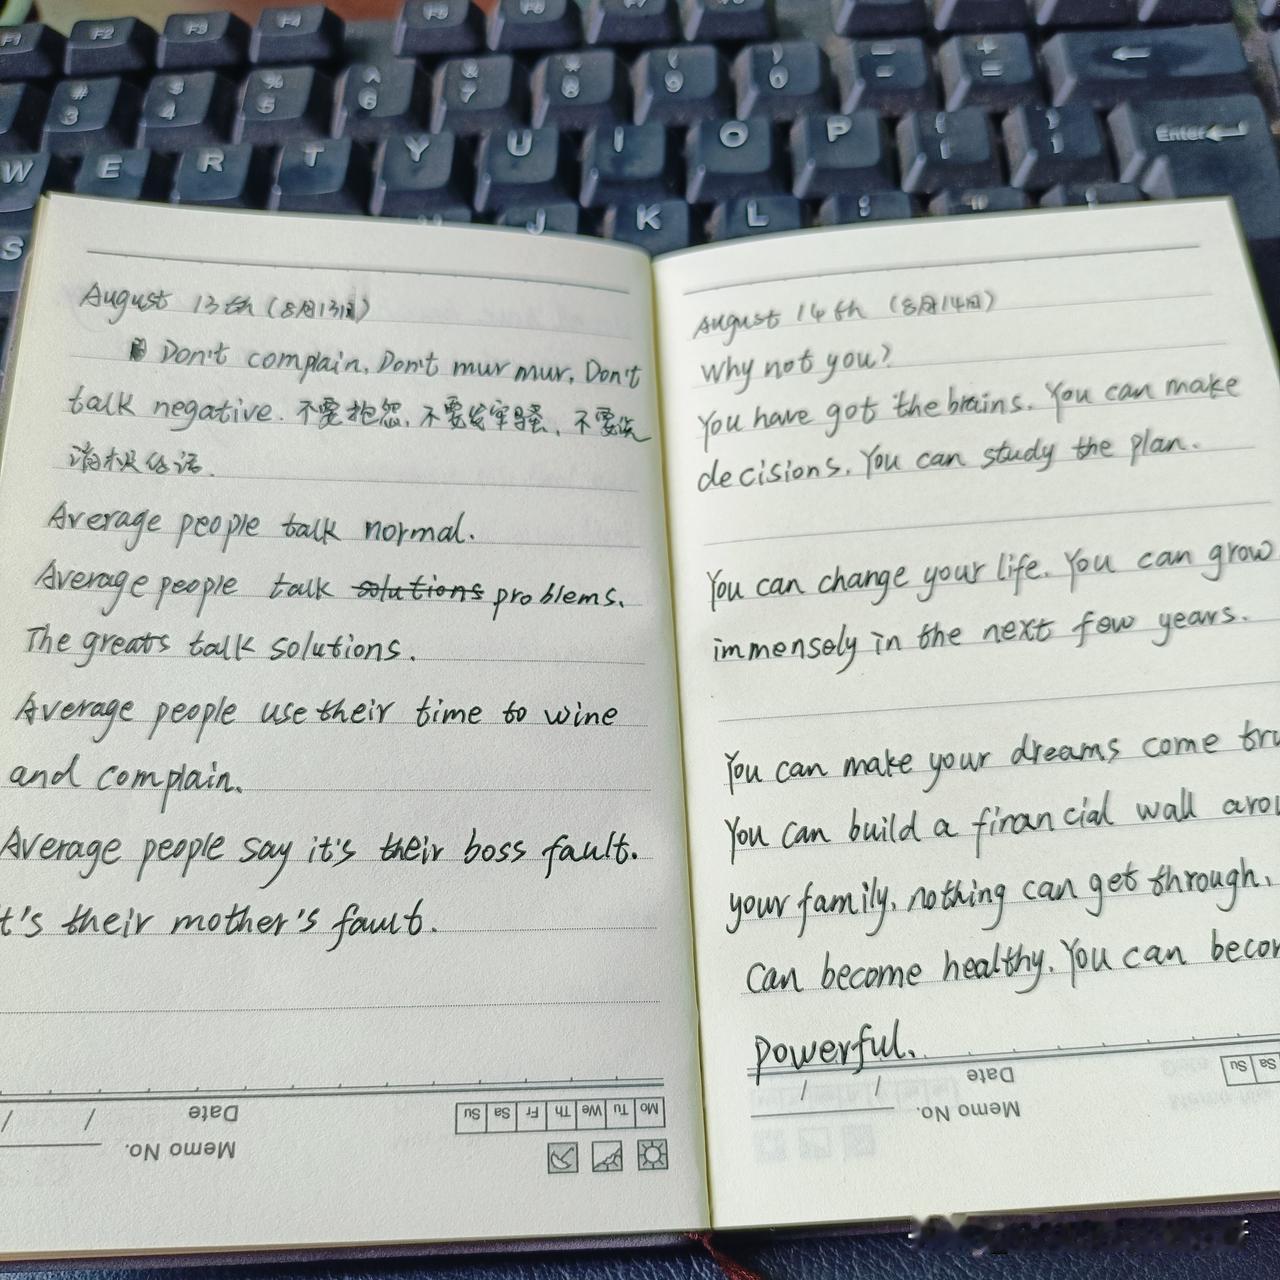 F1 F2 F3 F4 F5 F6 F7 F8
# 3 $ 4 % 5 ^ 6 & 7 * 8 ( 9 ) 0 - + =
W E R T Y U I O P { [ } ] Enter
S J K L : ; "
August 13th (8月13日)
Don't complain, Don't murmur, Don't
talk negative. 不要抱怨, 不要发牢骚, 不要说
消极的话.
Average people talk normal.
Average people talk solutions problems.
The greats talk solutions.
Average people use their time to wine
and complain.
Average people say it's their boss fault.
t's their mother's fault.
Date / /
Memo No.
Mo Tu We Th Fr Sa Su
August 14th (8月14日)
Why not you?
You have got the brains. You can make
decisions. You can study the plan.
You can change your life. You can grow
immensely in the next few years.
You can make your dreams come tru
You can build a financial wall arou
your family, nothing can get through.
can become healthy. You can becom
powerful.
Date / /
Memo No.
Sa Su